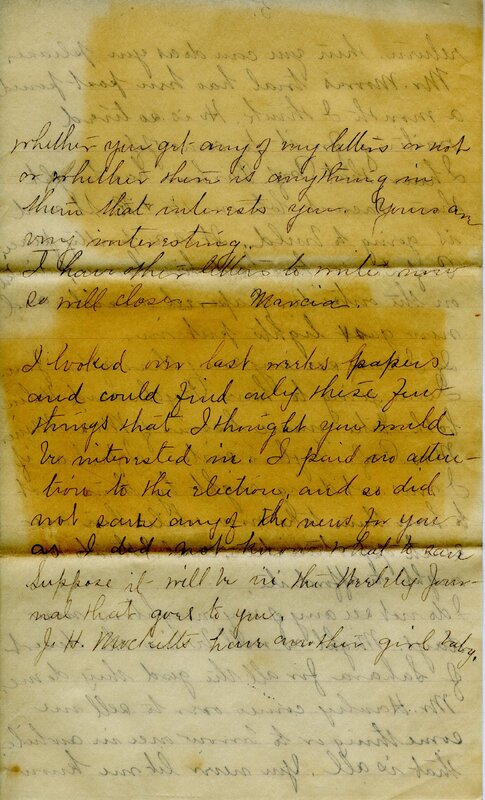 whether you get any of my letters or not
or whether there is anything in
them that interests you. Yours are
very interesting.
I have other letters to write now
so will close — Marcia.
I looked over last weeks papers
and could find only these few
things that I thought you would
be interested in. I paid no atten-
tion to the election, and so did
not save any of the news for you
as I did not know what to save
Suppose it will be in the Weekly Jour-
nal that goes to you.
J. H. Mocketts have another girl baby.